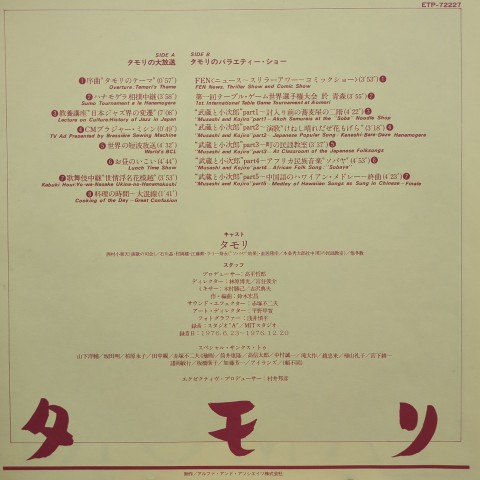 ETP-72227
SIDE A
タモリの大放送
❶序曲"タモリのテーマ"(0'57")
Overture:Tamori's Theme
❷ハナモゲラ相撲中継(3'58")
Sumo Tournament a la Hanamogera
❸教養講座"日本ジャズ界の変遷"(7'08")
Lecture on Culture:History of Jazz in Japan
❹CMブラジャー・ミシン(0'49")
TV Ad Presented by Brassiere Sewing Machine
❺世界の短波放送(4'32")
World's BCL
❻お昼のいこい(4'44")
Lunch Time Show
❼歌舞伎中継"世情浮名花模越"(3'53")
❽料理の時間−大混線(1'41")
Cooking of the Day—Great Confusion
SIDE B
タモリのバラエティー・ショー
FEN(ニュース〜スリラーアワー〜コミックショー)(3'53")❶
FEN News, Thriller Show and Comic Show
第一回テーブル・ゲーム世界選手権大会 於 青森(3'55")❷
1st. International Table Game Tournament at Aomori
"武蔵と小次郎"part1−討入り前の蕎麦屋の二階(4'22")❸
"Musashi and Kojiro"part1—Akoh Samurais at the "Soba" Noodle Shop
"武蔵と小次郎"part2−"演歌"けねし晴れだぜ花もげら"(3'18")❹
"武蔵と小次郎"part3−町の民謡教室(3'37")❺
"Musashi and Kojiro"part3—At Classroom of the Japanese Folksongs
"武蔵と小次郎"part4−アフリカ民族音楽"ソバヤ"(4'53")❻
"Musashi and Kojiro"part4—African Folk Song—"Sobaya"
"武蔵と小次郎"part5−中国語のハワイアン・メドレー〜終曲(4'23")❼
"Musashi and Kojiro"part5—Medley of Hawaiian Songs as Song in Chinese—Finale
キャスト
タモリ
スタッフ
プロデューサー:高平哲郎
ディレクター:
ミキサー:
作・編曲:鈴木宏昌
サウンド・エフェクター:赤塚不二夫
アート・ディレクター:
フォトグラファー:浅井慎平
録音:スタジオ"A"/MITスタジオ
録音日:1976.6.23〜1976.12.20
スペシャル・サンクス・トゥ
エクゼクティヴ・プロデューサー:村井邦彦
タモリ
制作/アルファ・アンド・アソシエイツ株式会社